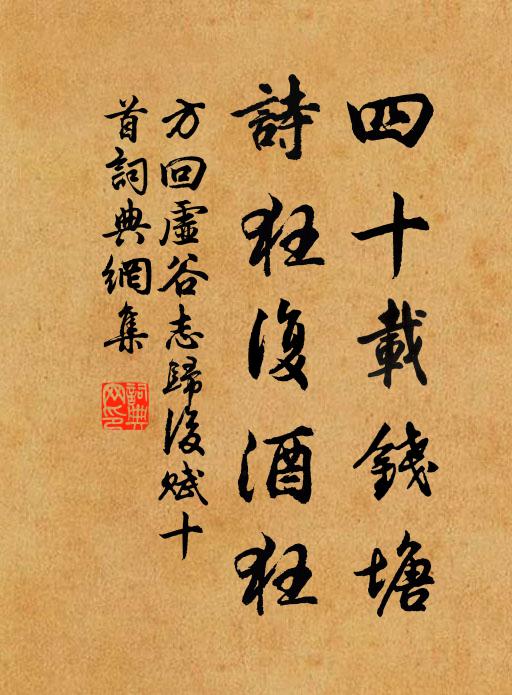 四十載錢塘
詩狂復酒狂
方回虛谷志歸後賦十
首詞典網集
詞典網印